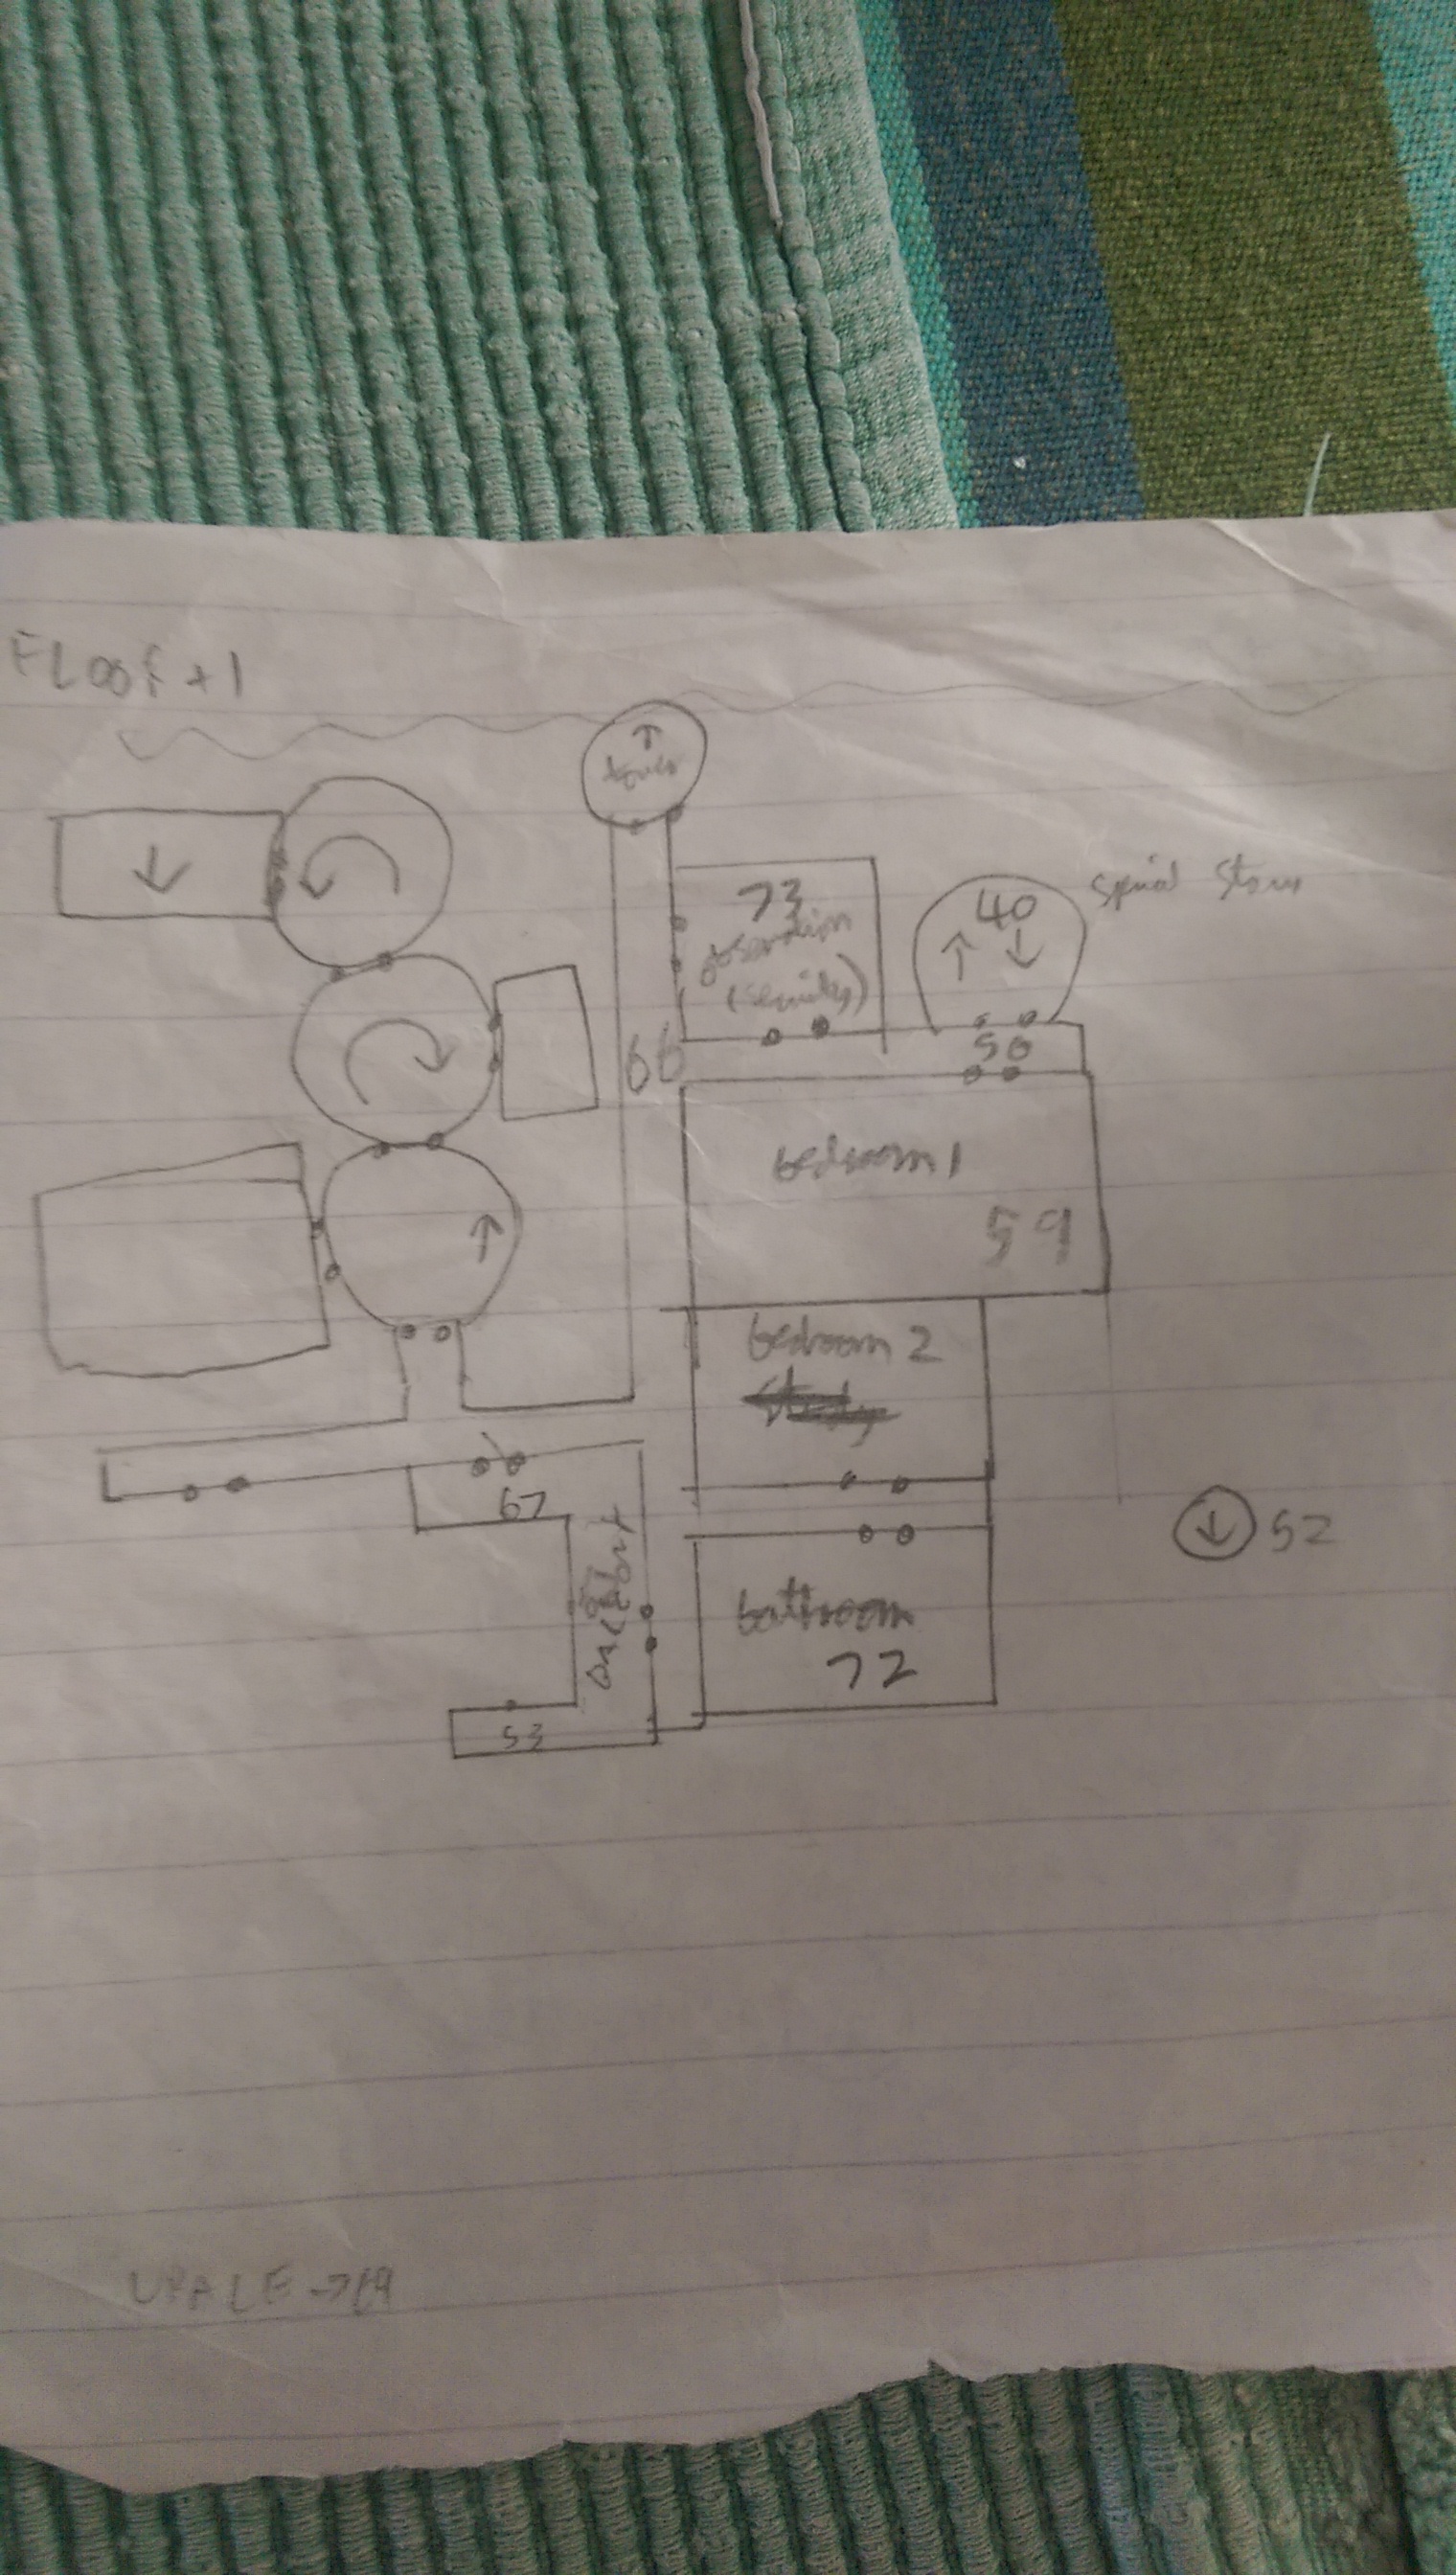 FLOOR +1
tower
73
observation
(security)
40
spiral stairs
66
50
bedroom 1
59
bedroom 2
67
52
bathroom
72
53